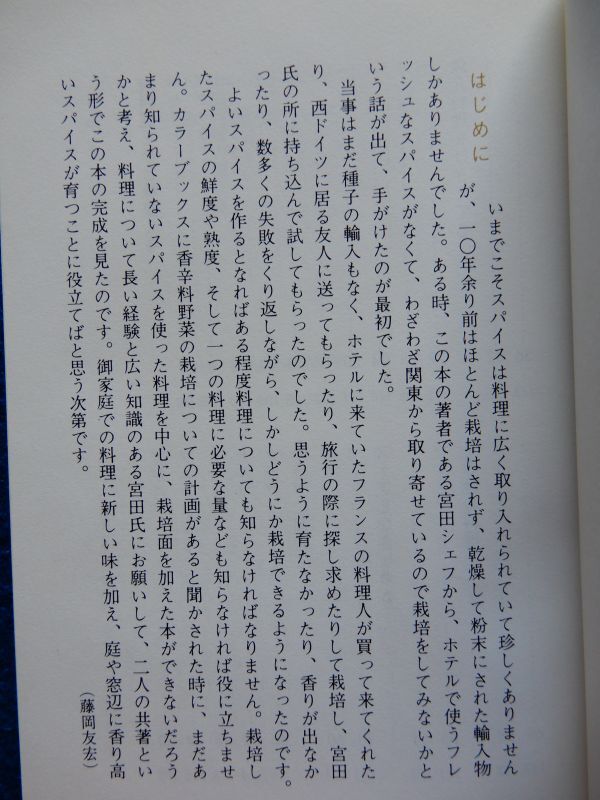 はじめに
いまでこそスパイスは料理に広く取り入れられていて珍しくありません
が、一〇年余り前はほとんど栽培はされず、乾燥して粉末にされた輸入物
しかありませんでした。ある時、この本の著者である宮田シェフから、ホテルで使うフレ
ッシュなスパイスがなくて、わざわざ関東から取り寄せているので栽培をしてみないかと
いう話が出て、手がけたのが最初でした。
当事はまだ種子の輸入もなく、ホテルに来ていたフランスの料理人が買って来てくれた
り、西ドイツに居る友人に送ってもらったり、旅行の際に探し求めたりして栽培し、宮田
氏の所に持ち込んで試してもらったのでした。思うように育たなかったり、香りが出なか
ったり、数多くの失敗をくり返しながら、しかしどうにか栽培できるようになったのです。
よいスパイスを作るとなればある程度料理についても知らなければなりません。栽培し
たスパイスの鮮度や熟度、そして一つの料理に必要な量なども知らなければ役に立ちませ
ん。カラーブックスに香辛料野菜の栽培についての計画があると聞かされた時に、まだあ
まり知られていないスパイスを使った料理を中心に、栽培面を加えた本ができないだろう
かと考え、料理について長い経験と広い知識のある宮田氏にお願いして、二人の共著とい
う形でこの本の完成を見たのです。御家庭での料理に新しい味を加え、庭や窓辺に香り高
いスパイスが育つことに役立てばと思う次第です。
(藤岡友宏)